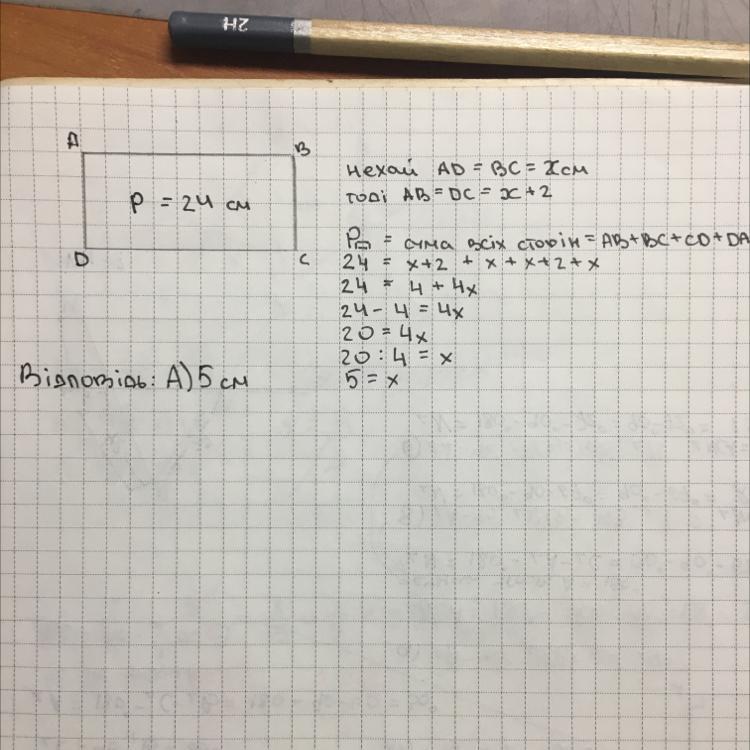 2H
A
B
P = 24 см
D
C
нехай AD = BC = x см
тоді AB = DC = x + 2
P▭ = сума всіх сторін = AB + BC + CD + DA
24 = x+2 + x + x + 2 + x
24 = 4 + 4x
24 - 4 = 4x
20 = 4x
20 : 4 = x
5 = x
Відповідь: А) 5 см